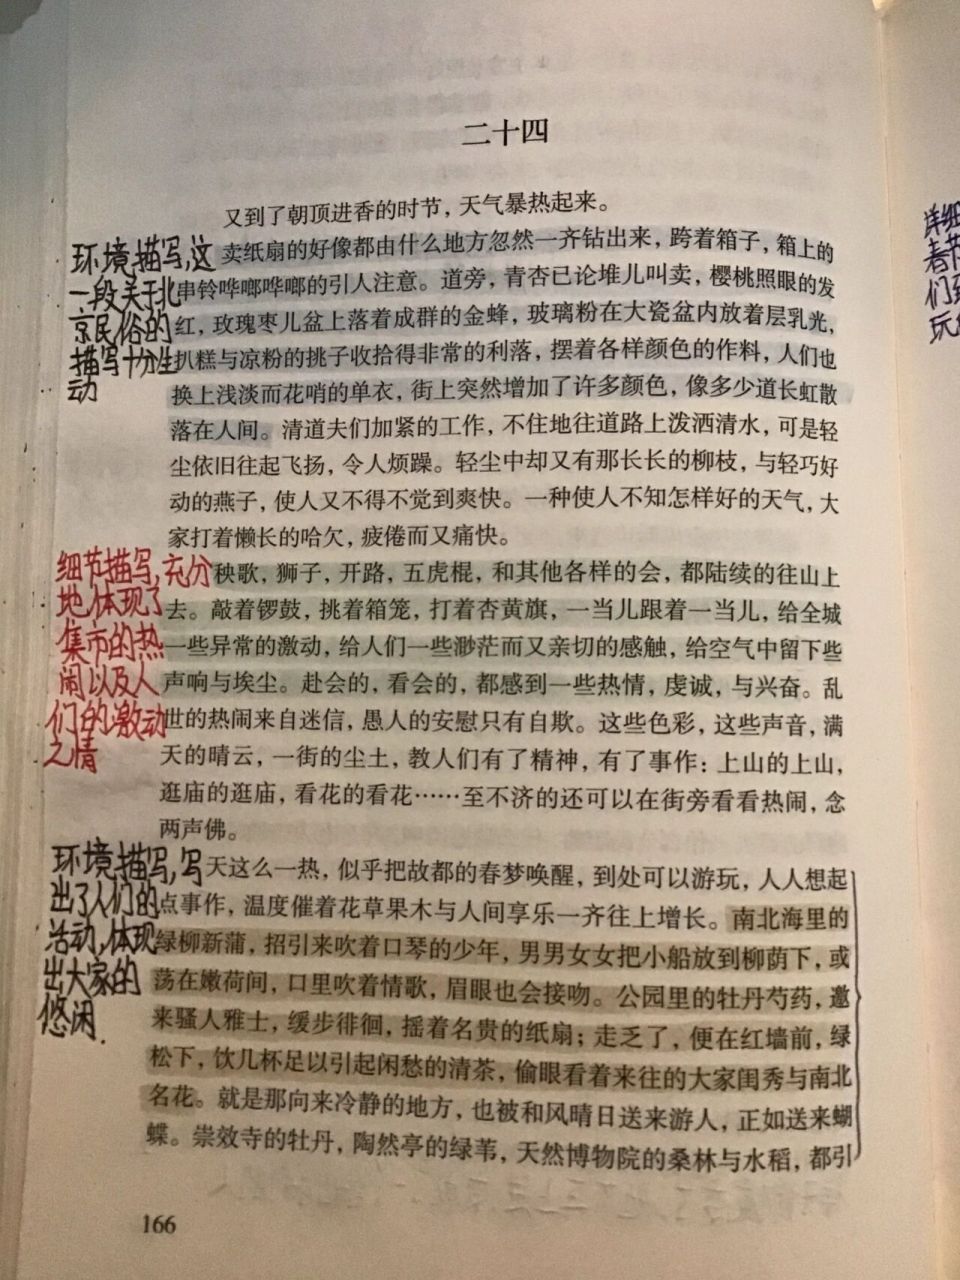 二十四
又到了朝顶进香的时节，天气暴热起来。
卖纸扇的好像都由什么地方忽然一齐钻出来，跨着箱子，箱上的
串铃哗啷哗啷的引人注意。道旁，青杏已论堆儿叫卖，樱桃照眼的发
红，玫瑰枣儿盆上落着成群的金蜂，玻璃粉在大瓷盆内放着层乳光，
扒糕与凉粉的挑子收拾得非常的利落，摆着各样颜色的作料，人们也
换上浅淡而花哨的单衣，街上突然增加了许多颜色，像多少道长虹散
落在人间。清道夫们加紧的工作，不住地往道路上泼洒清水，可是轻
尘依旧往起飞扬，令人烦躁。轻尘中却又有那长长的柳枝，与轻巧好
动的燕子，使人又不得不觉到爽快。一种使人不知怎样好的天气，大
家打着懒长的哈欠，疲倦而又痛快。
秧歌，狮子，开路，五虎棍，和其他各样的会，都陆续的往山上
去。敲着锣鼓，挑着箱笼，打着杏黄旗，一当儿跟着一当儿，给全城
一些异常的激动，给人们一些渺茫而又亲切的感触，给空气中留下些
声响与埃尘。赴会的，看会的，都感到一些热情，虔诚，与兴奋。乱
世的热闹来自迷信，愚人的安慰只有自欺。这些色彩，这些声音，满
天的晴云，一街的尘土，教人们有了精神，有了事作：上山的上山，
逛庙的逛庙，看花的看花……至不济的还可以在街旁看看热闹，念
两声佛。
天这么一热，似乎把故都的春梦唤醒，到处可以游玩，人人想起
点事作，温度催着花草果木与人间享乐一齐往上增长。南北海里的
绿柳新蒲，招引来吹着口琴的少年，男男女女把小船放到柳荫下，或
荡在嫩荷间，口里吹着情歌，眉眼也会接吻。公园里的牡丹芍药，邀
来骚人雅士，缓步徘徊，摇着名贵的纸扇；走乏了，便在红墙前，绿
松下，饮几杯足以引起闲愁的清茶，偷眼看着来往的大家闺秀与南北
名花。就是那向来冷静的地方，也被和风晴日送来游人，正如送来蝴
蝶。崇效寺的牡丹，陶然亭的绿苇，天然博物院的桑林与水稻，都引
166
环境描写，这
一段关于北
京民俗的
描写十分生
动
细节描写，充分
地体现了
集市的热
闹以及人
们的激动
之情
环境描写，写
出了人们的
活动，体现
出大家的
悠闲.
详细
春节
们
玩